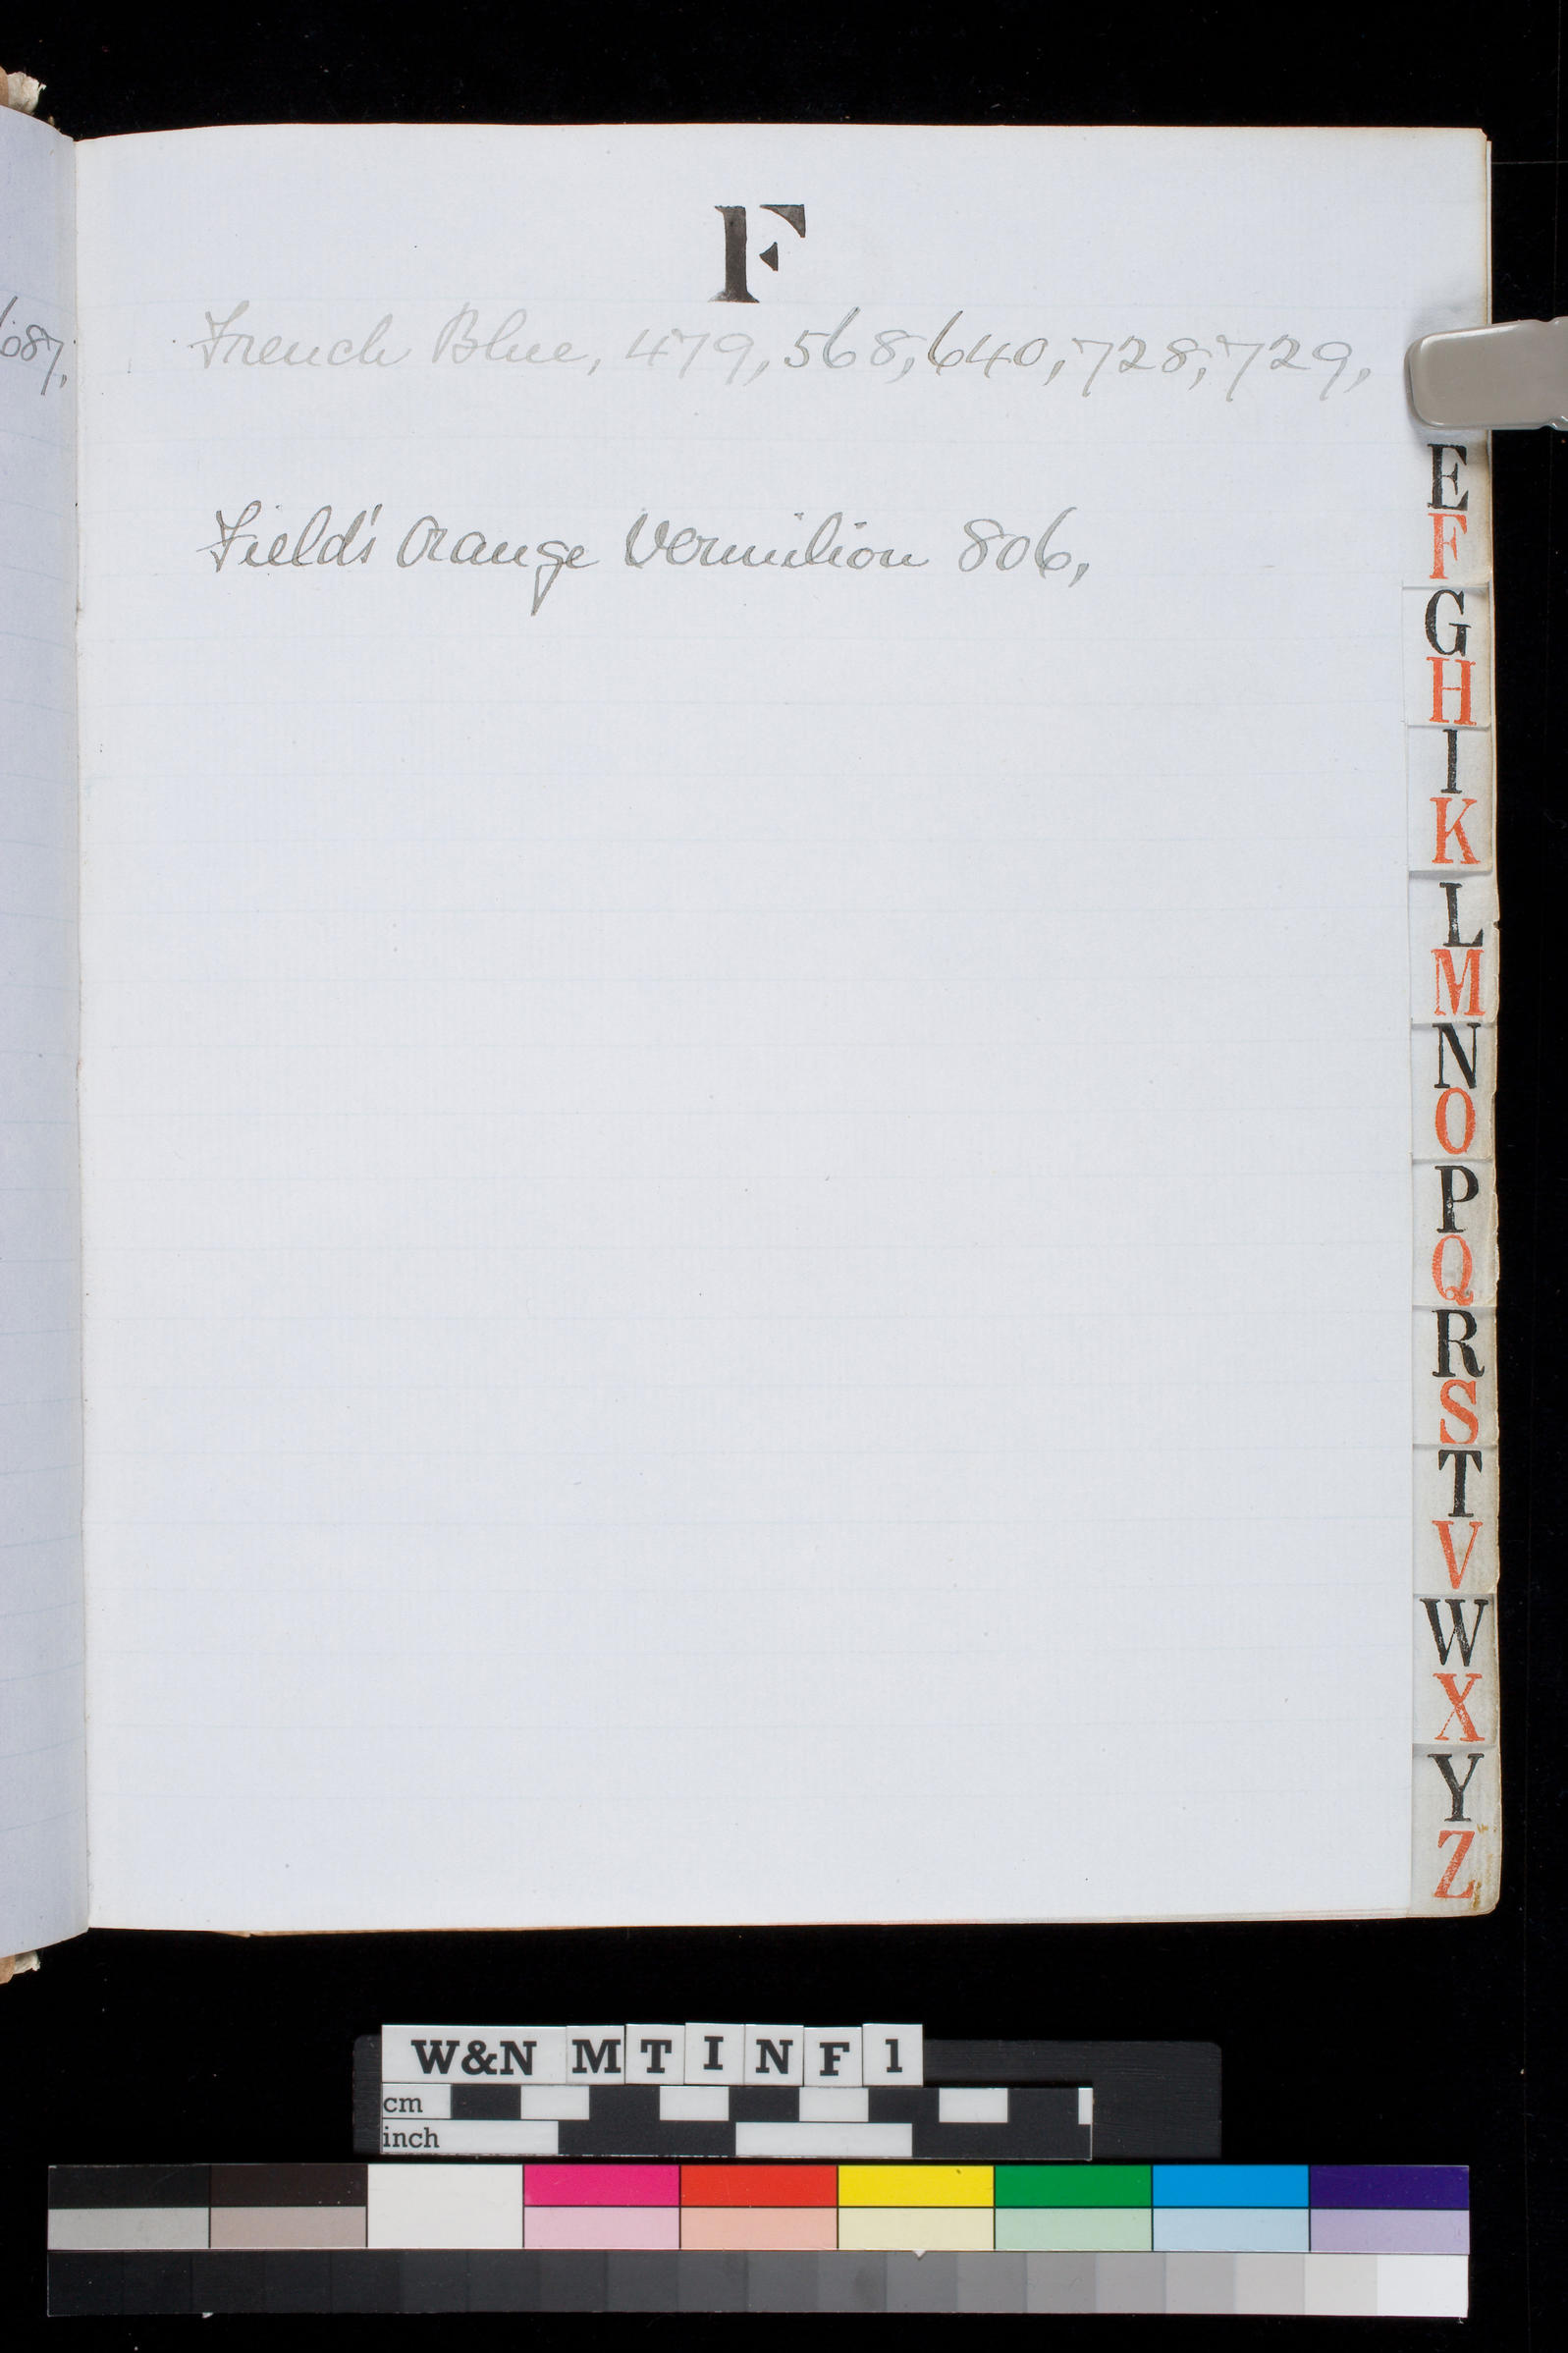 F
687,
French Blue, 479, 568, 640, 728, 729,
Field's Orange Vermilion 806,
E
F
G
H
I
K
L
M
N
O
P
Q
R
S
T
V
W
X
Y
Z
W&N MTINF1
cm
inch